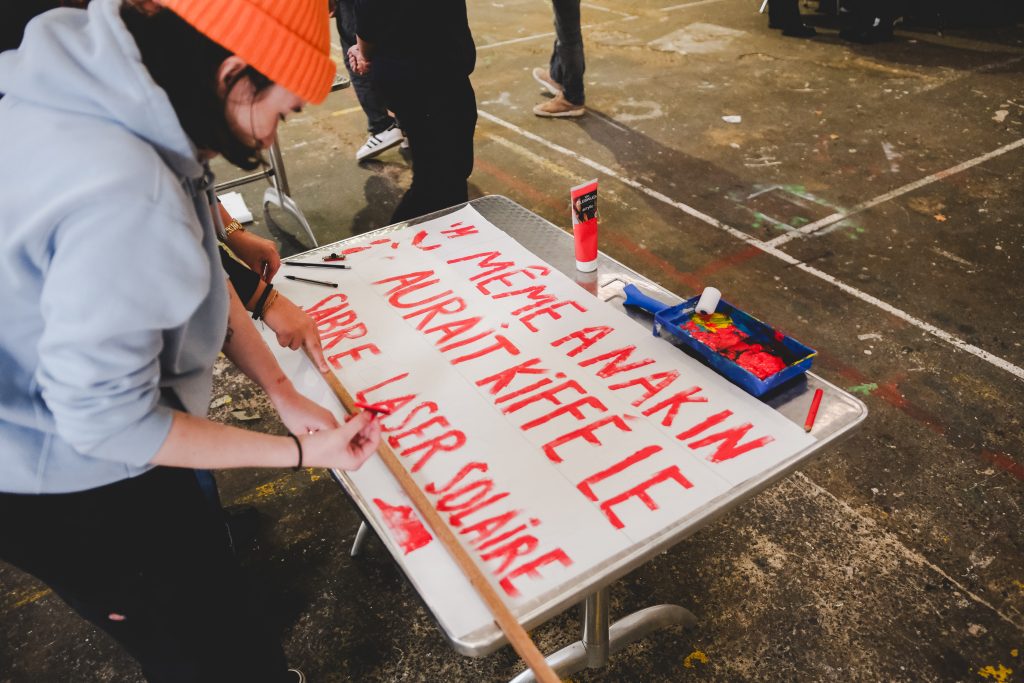 "MÊME ANAKIN
AURAIT KIFFÉ LE
SABRE LASER SOLAIRE